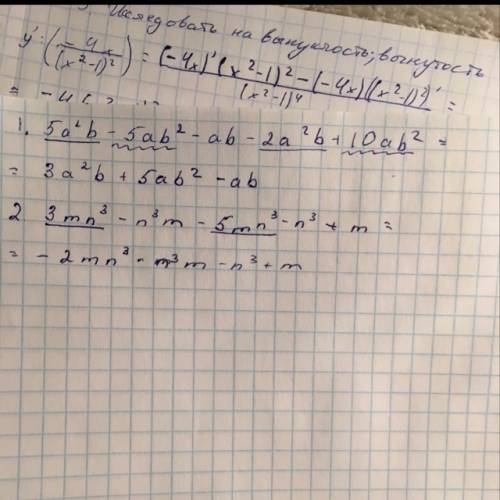 Исследовать на выпуклость; вогнутость
y' : (-4x/(x²-1)²)' = ((-4x)'(x²-1)² - (-4x)((x²-1)²)')/(x²-1)⁴ =
= -4(
1. 5a²b - 5ab² - ab - 2a²b + 10ab² =
= 3a²b + 5ab² - ab
2 3mn³ - n³m - 5mn³ - n³ + m =
= - 2mn³ - n³m - n³ + m